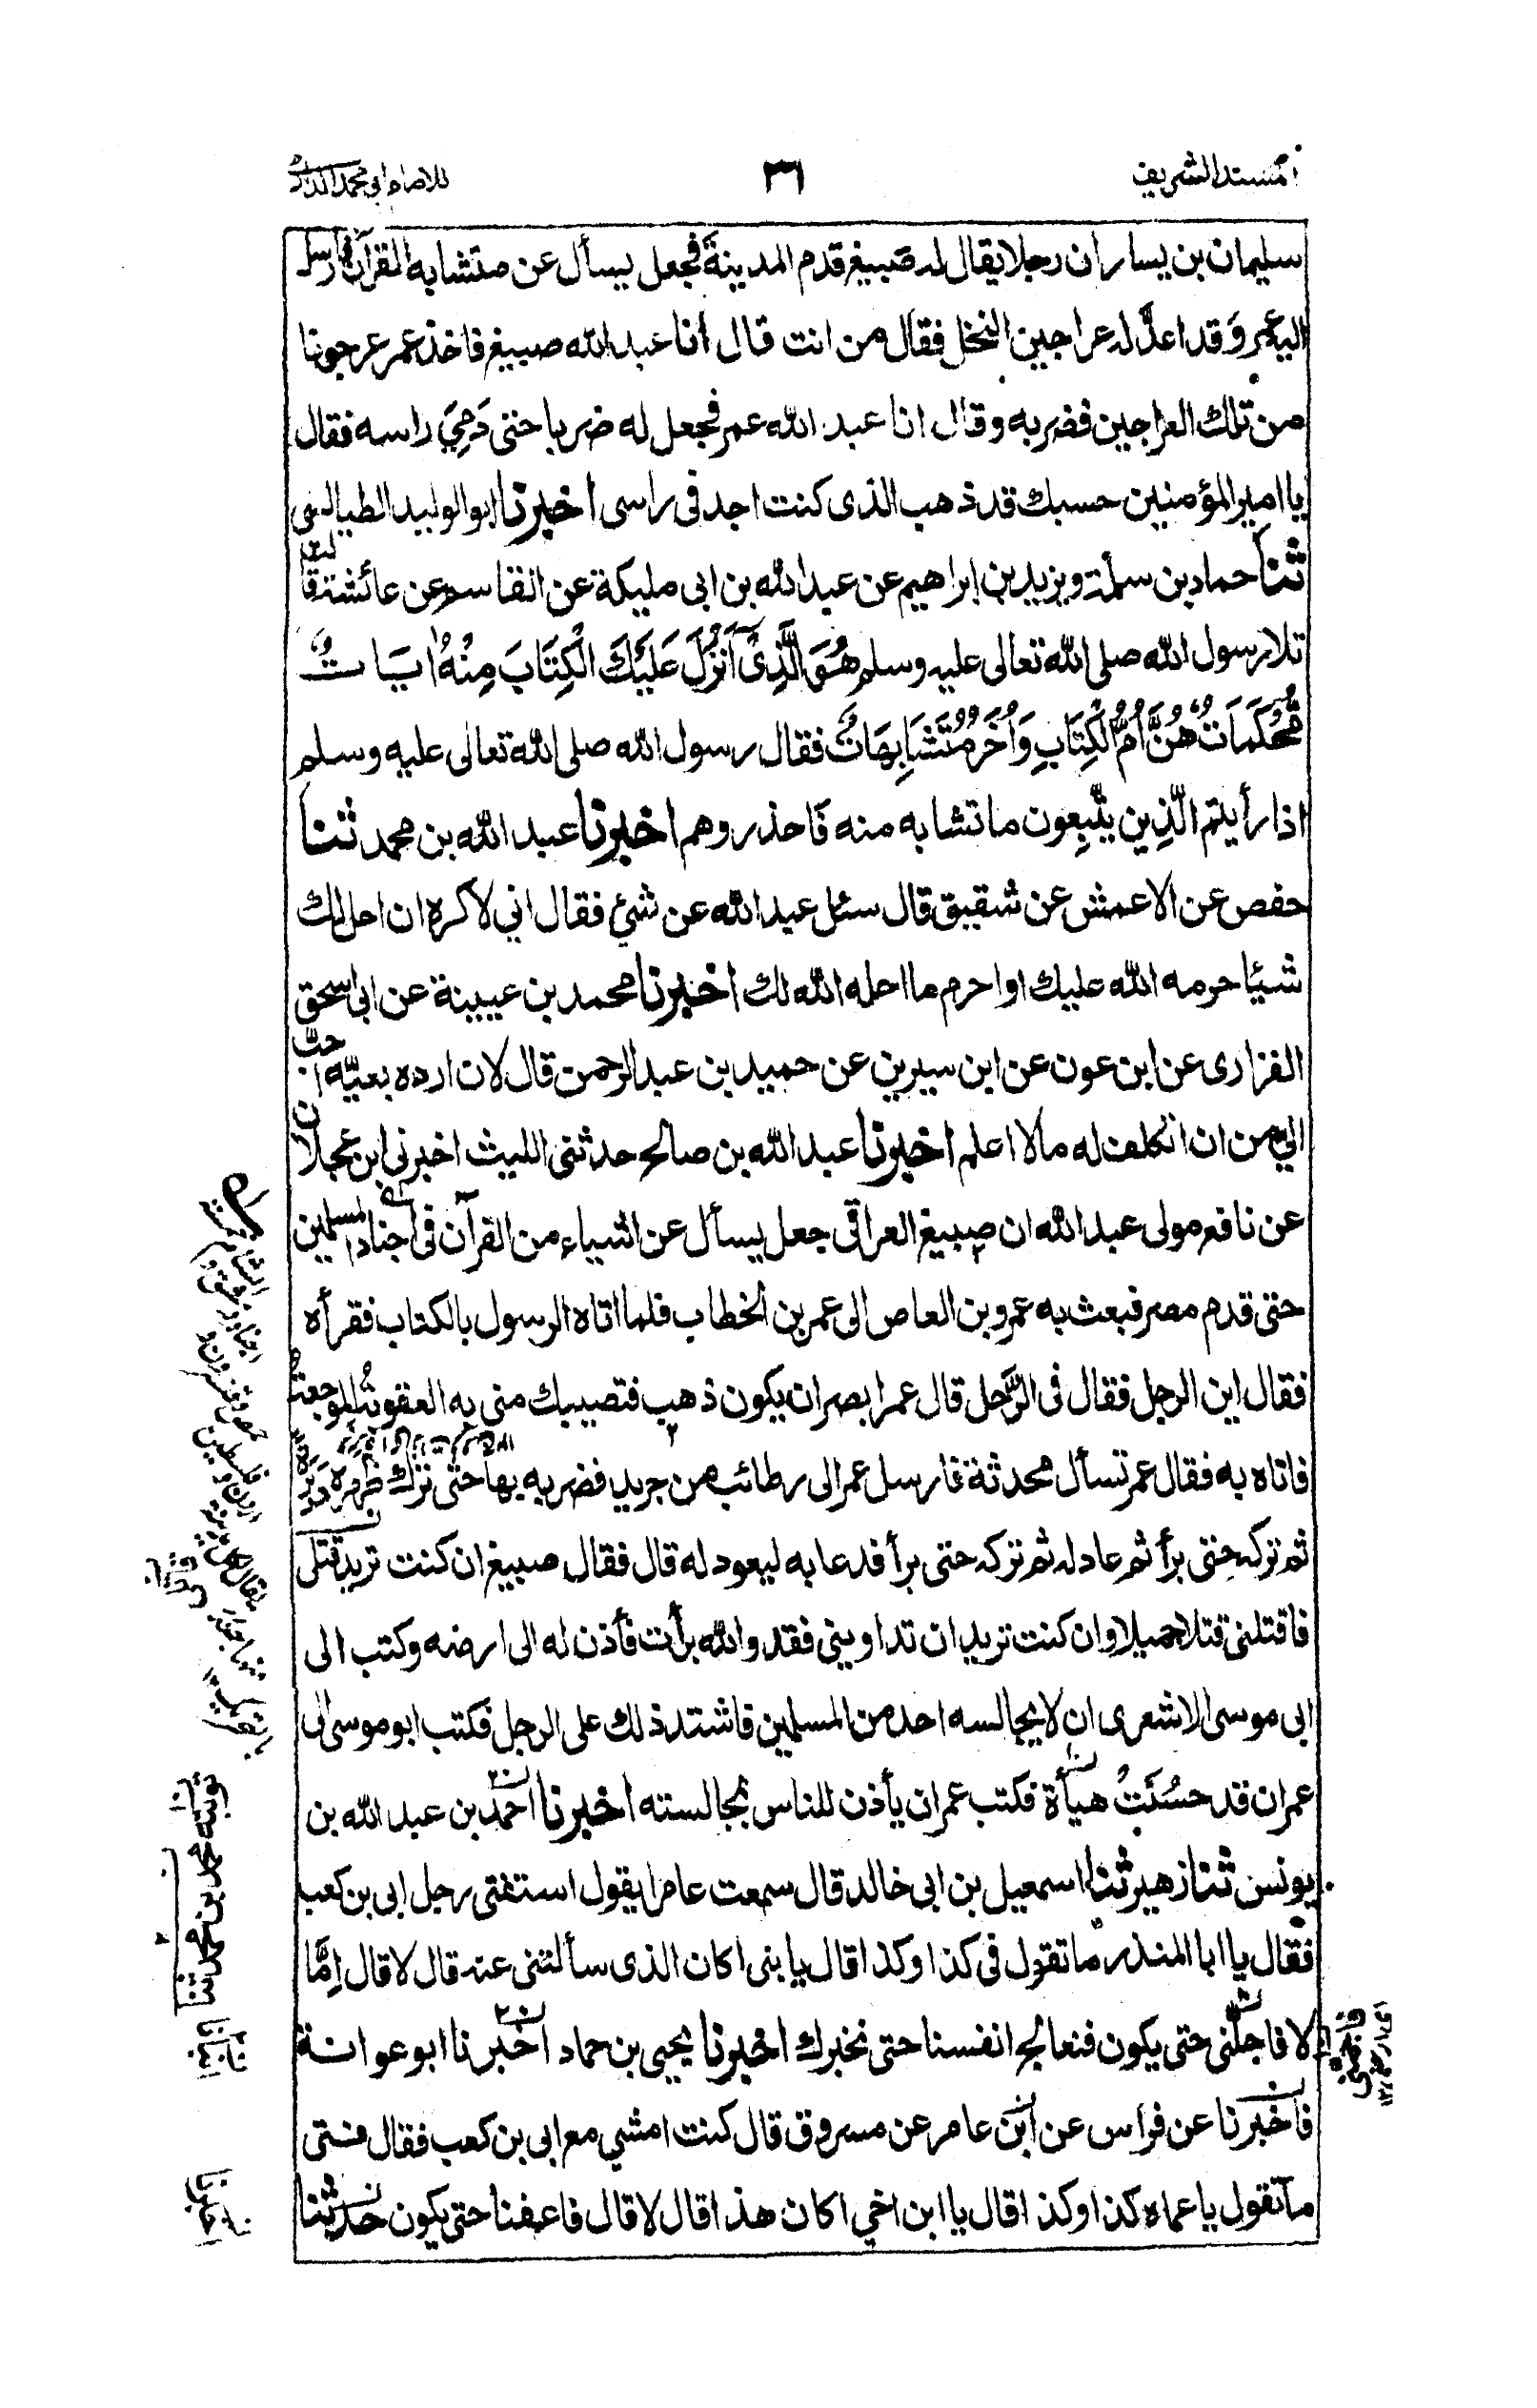 المسند الشريف
٣٦
للامام ابو محمد الدارمي
سليمان بن يسار ان رجلا يقال له صبيغ قدم المدينة فجعل يسأل عن متشابه القرآن فارسل
اليه عمر وقد اعدّ له عراجين النخل فقال من انت قال انا عبد الله صبيغ فاخذ عمر عرجونا
من تلك العراجين فضربه وقال انا عبد الله عمر فجعل له ضربا حتى دَمِيَ راسه فقال
يا امير المؤمنين حسبك قد ذهب الذى كنت اجد فى راسى اخبرنا ابو الوليد الطيالسى
ثنا حماد بن سلمة ويزيد بن ابراهيم عن عبد الله بن ابى مليكة عن القاسم عن عائشة قالت
تلا رسول الله صلى الله تعالى عليه وسلم هُوَ الَّذِىْ اَنْزَلَ عَلَيْكَ الْكِتَابَ مِنْهُ اٰيَاتٌ
مُّحْكَمَاتٌ هُنَّ اُمُّ الْكِتَابِ وَاُخَرُ مُتَشَابِهَاتٌ فقال رسول الله صلى الله تعالى عليه وسلم
اذا رأيتم الّذِين يتّبِعون ما تشابه منه فاحذروهم اخبرنا عبد الله بن محمد ثنا
حفص عن الاعمش عن شقيق قال سئل عبد الله عن شئ فقال اني لاكره ان احل لك
شيئا حرمه الله عليك او احرم ما احله الله لك اخبرنا محمد بن عيينة عن ابى اسحق
الفزارى عن ابن عون عن ابن سيرين عن حميد بن عبد الرحمن قال لان ارده بعيّه احبّ
الي من ان اتكلف له مالا اعلم اخبرنا عبد الله بن صالح حدثنى الليث اخبرنى ابن عجلان
عن نافع مولى عبد الله ان صبيغ العراقى جعل يسأل عن اشياء من القرآن فى اجناد المسلمين
حتى قدم مصر فبعث به عمرو بن العاص الى عمر بن الخطاب فلما اتاه الرسول بالكتاب فقرأه
فقال اين الرجل فقال فى الرَّحل قال عمر ابصر ان يكون ذهب فتصيبك منى به العقوبة الموجعة
فاتاه به فقال عمر تسأل محدثة فارسل عمر الى رطائب من جريد فضربه بها حتى ترك ظهره دبرة
ثم تركه حتى برأ ثم عاد له ثم تركه حتى برأ فدعا به ليعود له قال فقال صبيغ ان كنت تريد قتلى
فاقتلنى قتلا جميلا وان كنت تريد ان تداوينى فقد والله برأت فأذن له الى ارضه وكتب الى
ابى موسى الاشعرى ان لا يجالسه احد من المسلمين فاشتد ذلك على الرجل فكتب ابو موسى الى
عمر ان قد حسُنَتْ هيأة فكتب عمر ان يأذن للناس بمجالسته اخبرنا احمد بن عبد الله بن
يونس ثنا زهير ثنا اسمعيل بن ابى خالد قال سمعت عامرا يقول استفتى رجل ابى بن كعب
فقال يا ابا المنذر ما تقول فى كذا وكذا قال يا بنى اكان الذى سألتنى عنه قال لا قال اِمَّا
لا فاجلّنى حتى يكون فنعالج انفسنا حتى نخبرك اخبرنا يحيى بن حماد اخبرنا ابو عوانة
فاخبرنا عن فراس عن ابن عامر عن مسروق قال كنت امشي مع ابى بن كعب فقال فتى
ما تقول يا عماه كذا وكذا قال يا ابن اخي اكان هذا قال لا قال فاعفنا حتى يكون حدثنا
محمد بن محمد ثنا
انبأنا
اخبرنا